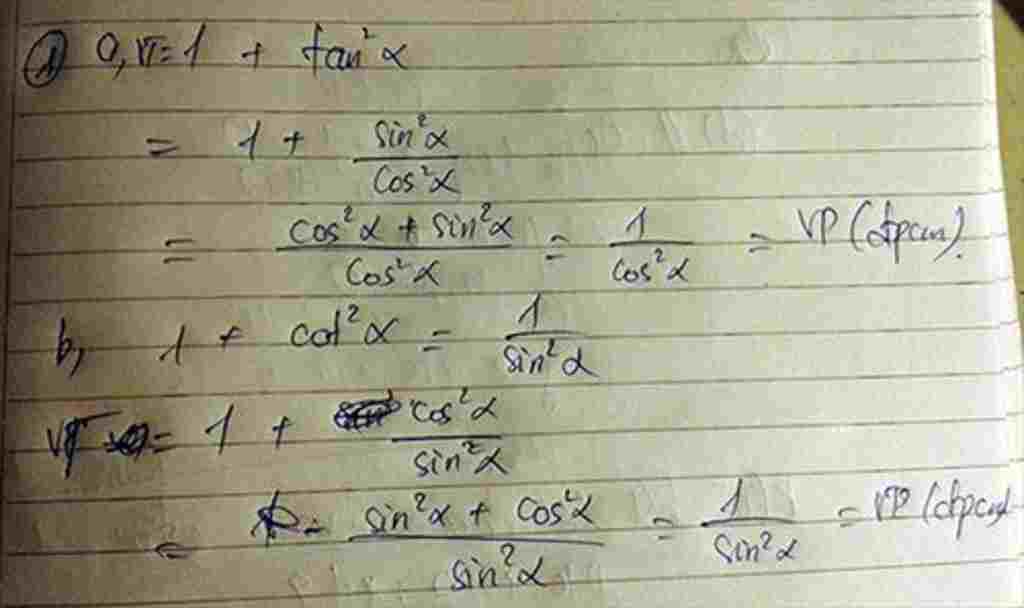 ① a, VT = 1 + tan²α
= 1 + sin²α / cos²α
= (cos²α + sin²α) / cos²α = 1 / cos²α = VP (đpcm).
b, 1 + cot²α = 1 / sin²α
VT = 1 + cos²α / sin²α
= (sin²α + cos²α) / sin²α = 1 / sin²α = VP (đpcm)